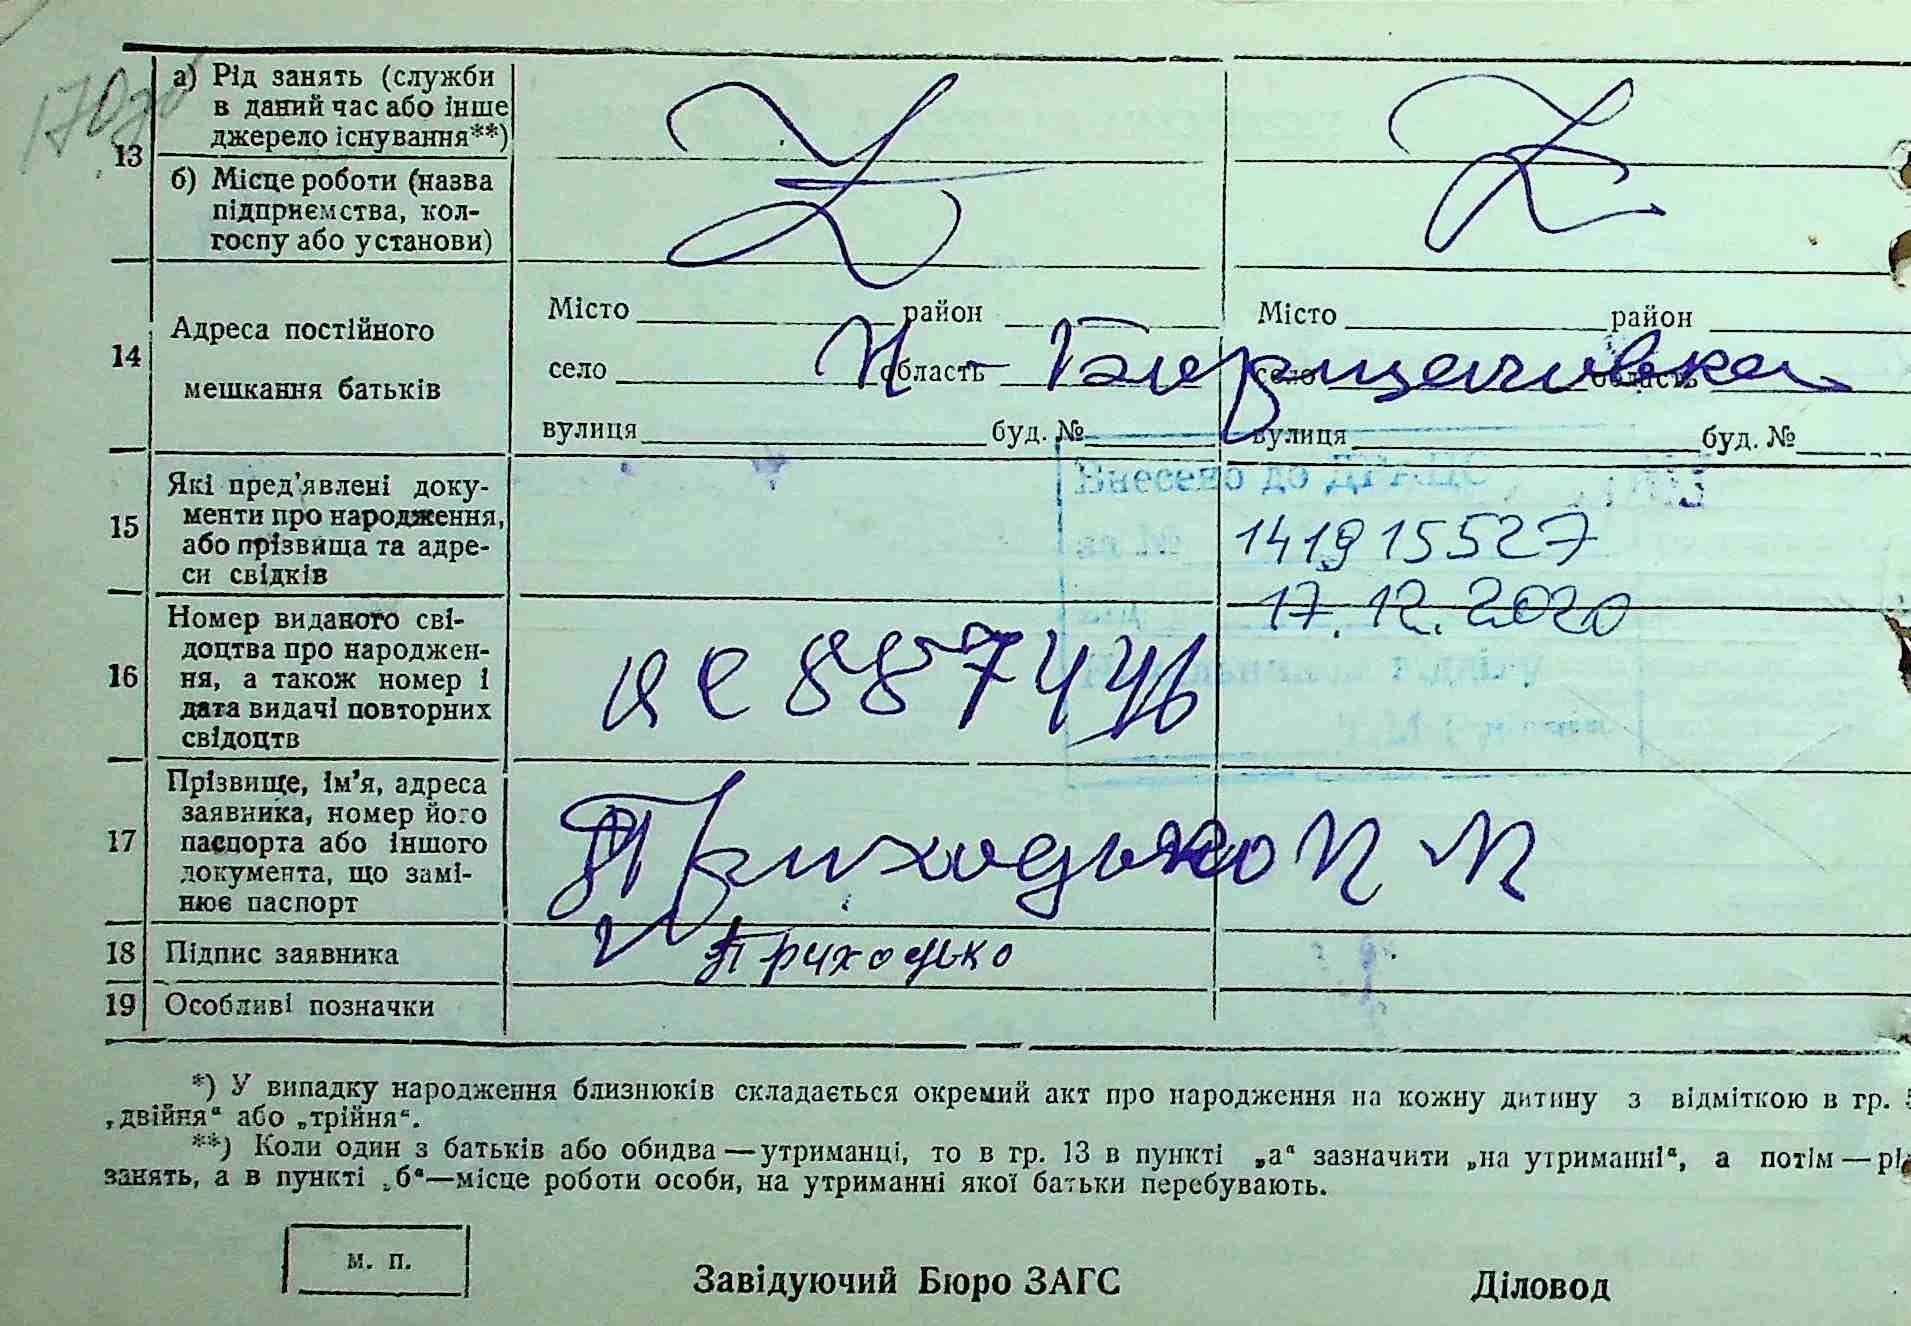 13
а) Рід занять (служби
в даний час або інше
джерело існування**)
б) Місце роботи (назва
підприємства, кол-
госпу або установи)
14
Адреса постійного
мешкання батьків
Місто район
село область
вулиця буд. №
Місто район
село область
вулиця буд. №
15
Які пред'явлені доку-
менти про народження,
або прізвища та адре-
си свідків
Внесено до ДРАЦС
141915527
17.12.2020
16
Номер виданого сві-
доцтва про народжен-
ня, а також номер і
дата видачі повторних
свідоцтв
887446
17
Прізвище, ім'я, адреса
заявника, номер його
паспорта або іншого
документа, що замі-
нює паспорт
Приходько
18 Підпис заявника Приходько
19 Особливі позначки
*) У випадку народження близнюків складається окремий акт про народження на кожну дитину з відміткою в гр.
„двійня“ або „трійня“.
**) Коли один з батьків або обидва—утриманці, то в гр. 13 в пункті „а“ зазначити „на утриманні“, а потім—рід
занять, а в пункті „б“—місце роботи особи, на утриманні якої батьки перебувають.
м. п.
Завідуючий Бюро ЗАГС Діловод